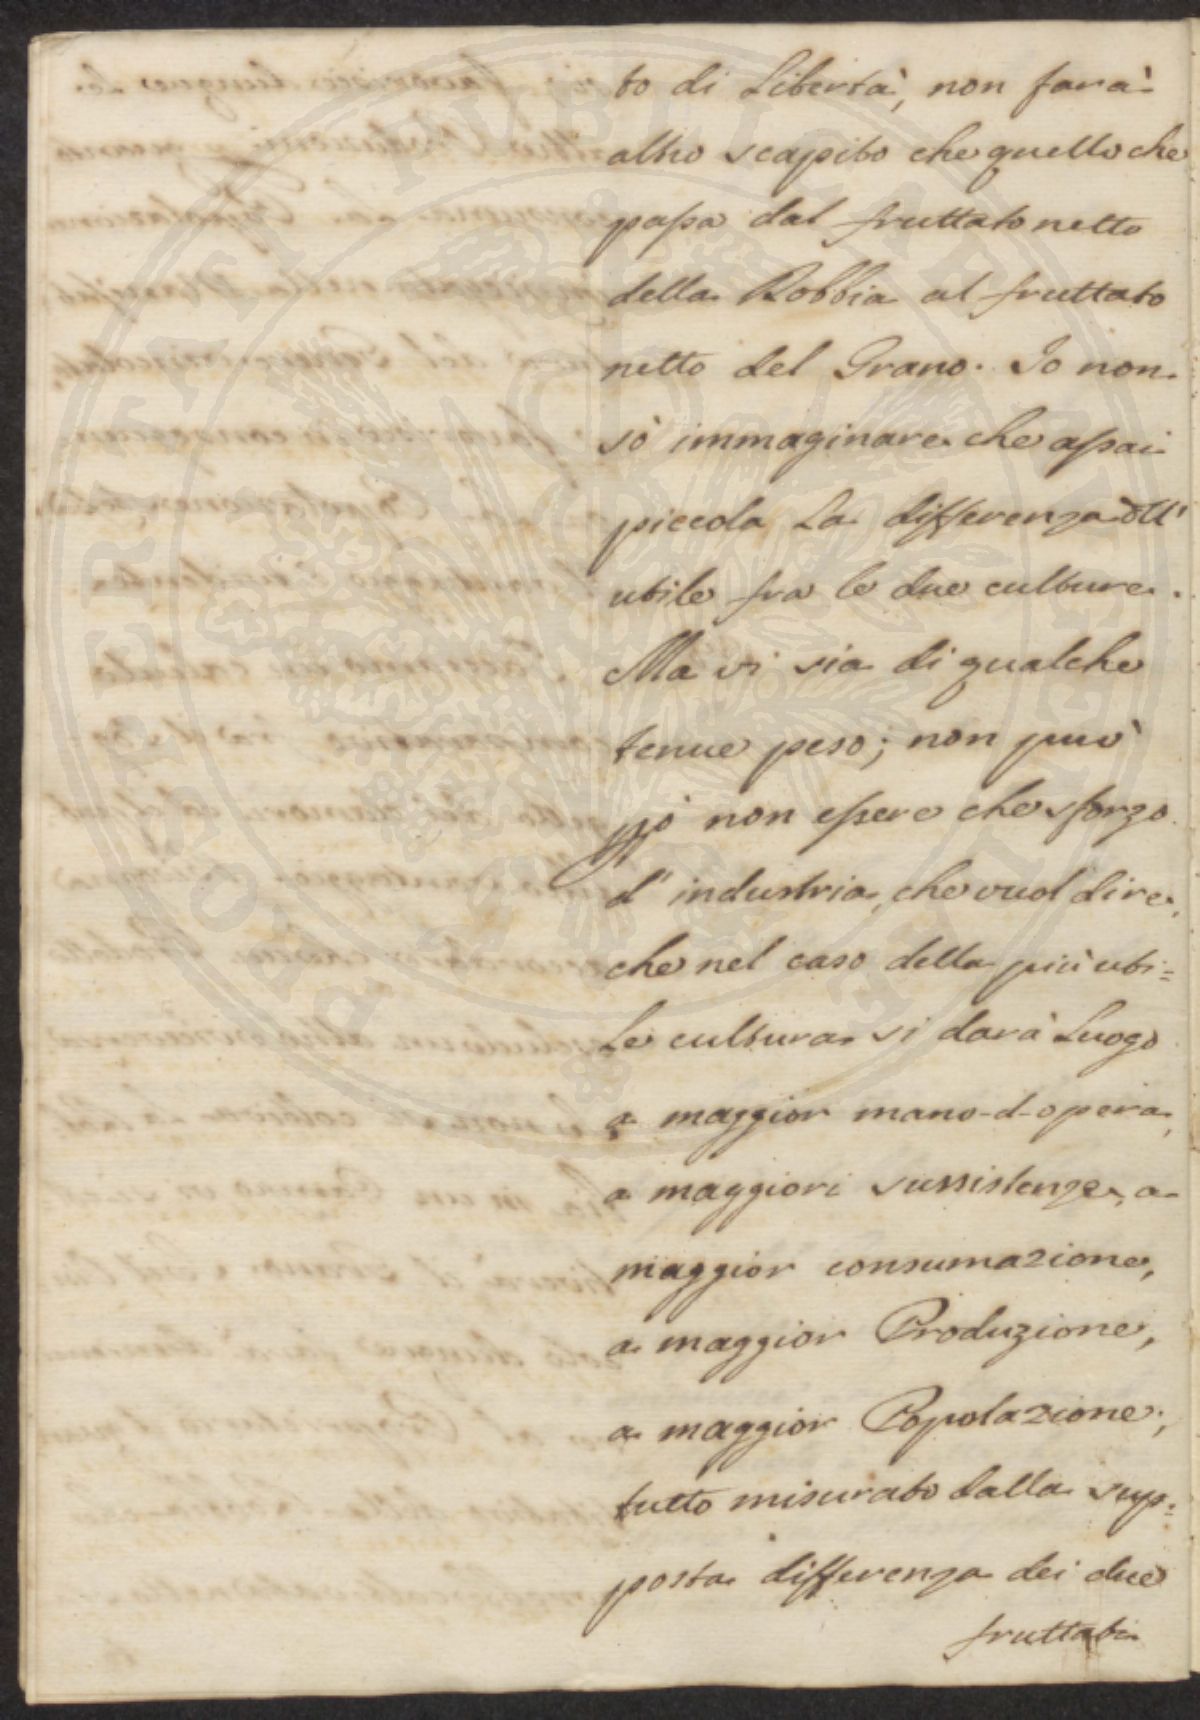 to di Libertà, non farà
altro scapito che quello che
passa dal fruttato netto
della Robbia al fruttato
netto del Grano. Io non
sò immaginare che assai
piccola La differenza dell'
utile fra le due culture.
Ma vi sia di qualche
tenue peso; non può
però non essere che sforzo
d'industria, che vuol dire,
che nel caso della più uti=
Le cultura si darà Luogo
a maggior mano-d-opera,
a maggiori sussistenze, a
maggior consumazione,
a maggior Produzione,
a maggior Popolazione;
tutto misurato dalla sup=
posta differenza dei due
fruttati